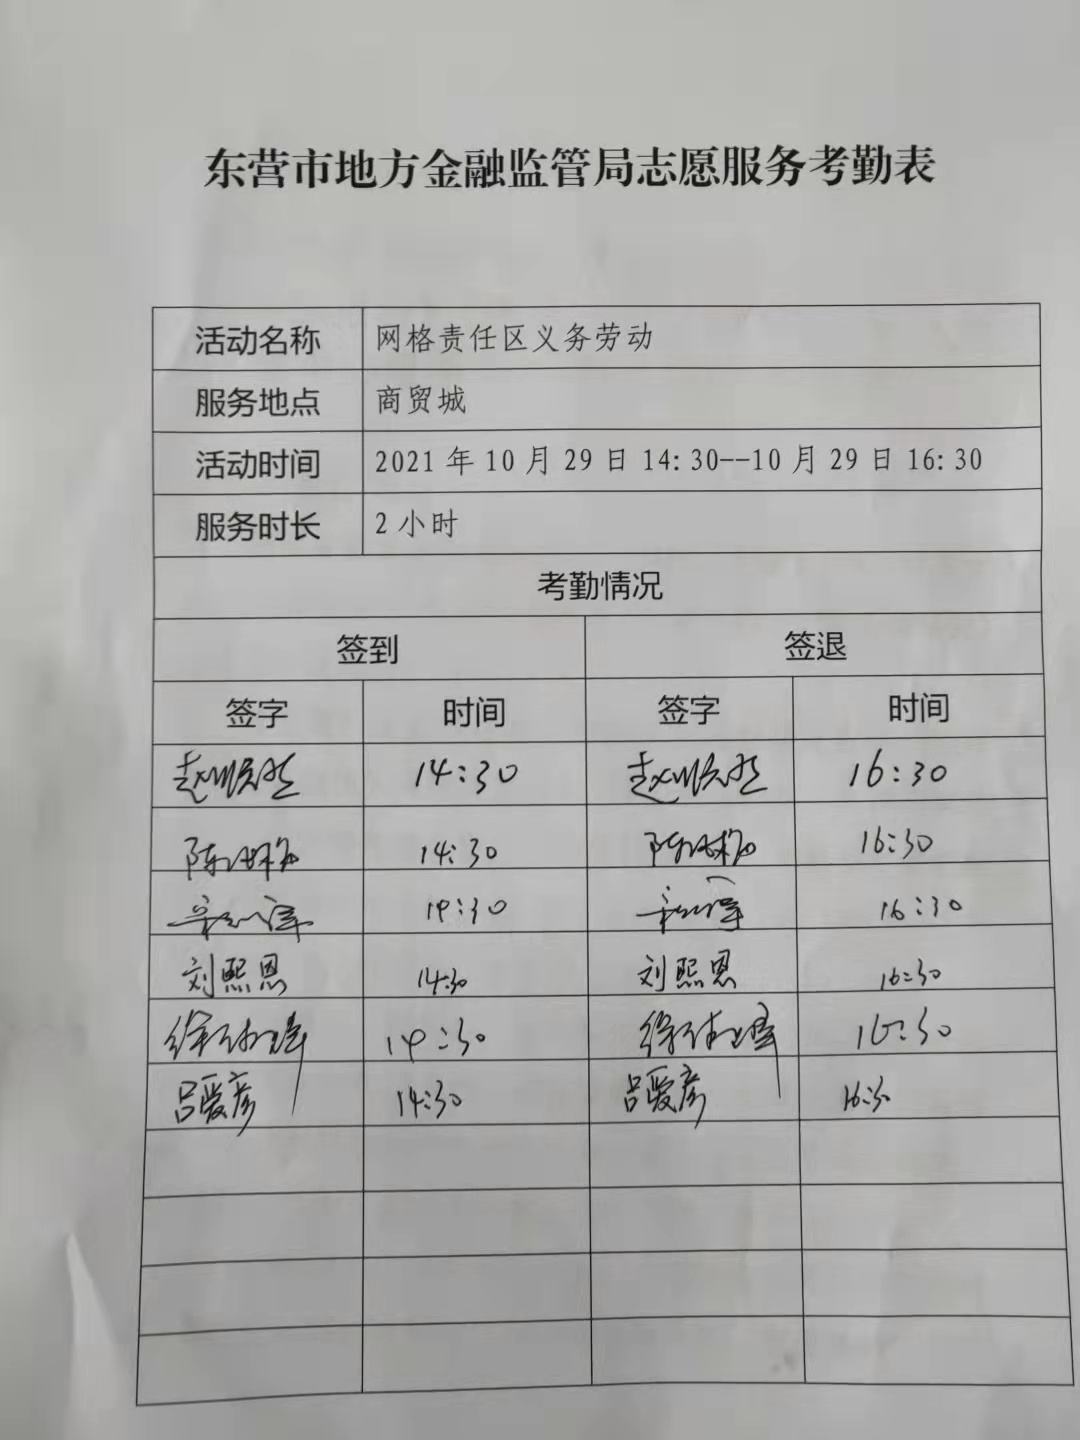 东营市地方金融监管局志愿服务考勤表
活动名称 网格责任区义务劳动
服务地点 商贸城
活动时间 2021年10月29日14:30--10月29日16:30
服务时长 2小时
考勤情况
签到 签退
签字 时间 签字 时间
14:30 16:30
14:30 16:30
14:30 16:30
刘熙恩 14:30 刘熙恩 16:30
14:30 16:30
吕爱彦 14:30 吕爱彦 16:30